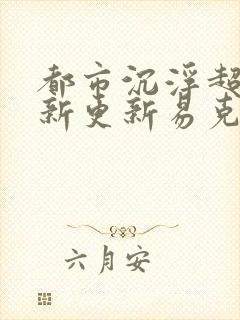 都市沉浮超
新更新易克
六月安